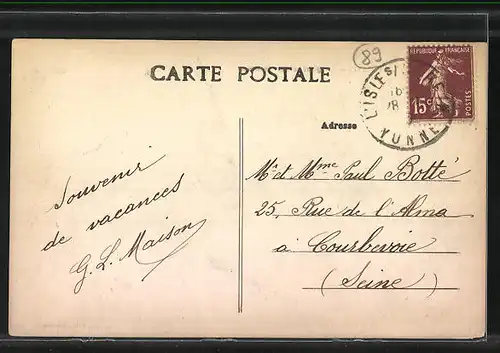 89
RÉPUBLIQUE FRANÇAISE
15c
POSTES
CARTE POSTALE
L'ISLE S/
YONNE
Adresse
Mr et Mme Paul Botté
25, Rue de l'Alma
à Courbevoie
(Seine)
Souvenir
de vacances
G. L. Maison